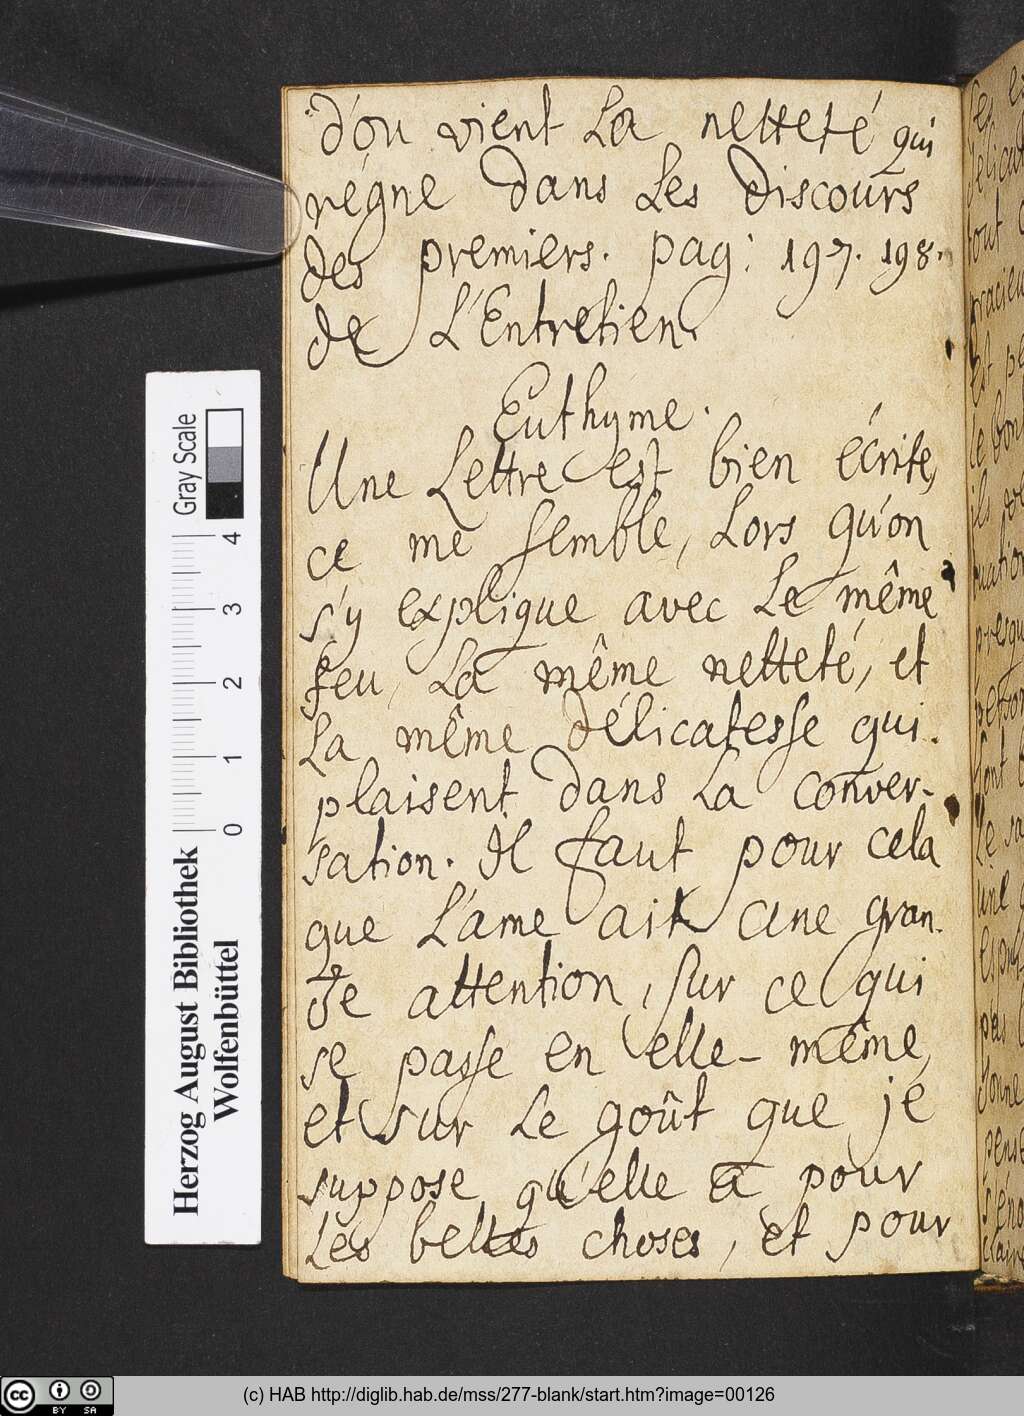 d'óu vient La netteté qui
régne dans Les Discours
des premiers. pag: 197. 198.
de L'Entretien.
Euthyme.
Une Lettre est bien écrite,
ce me semble, Lors qu'on
s'y explique avec Le même
feu, La même netteté, et
La même délicatesse qui
plaisent dans La conver-
sation. Il faut pour cela
que L'ame ait une gran-
de attention, sur ce qui
se passe en elle-même,
et sur Le goût que je
suppose qu'elle a pour
Les belles choses, et pour
Gray Scale
0 1 2 3 4
Herzog August Bibliothek
Wolfenbüttel
cc BY SA
(c) HAB http://diglib.hab.de/mss/277-blank/start.htm?image=00126